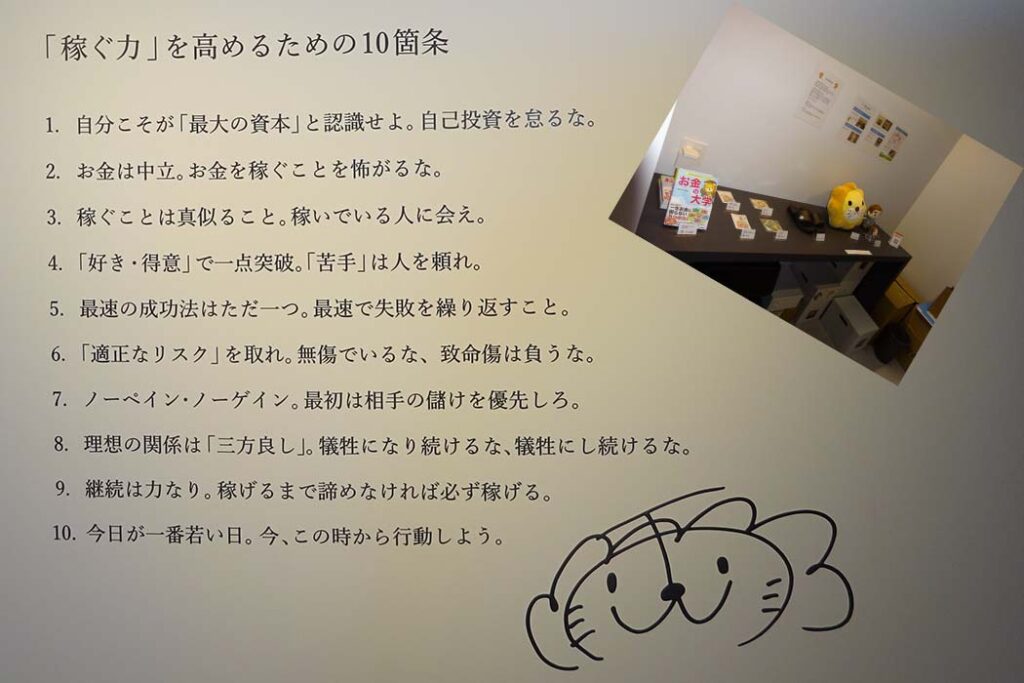 「稼ぐ力」を高めるための10箇条
1. 自分こそが「最大の資本」と認識せよ。自己投資を怠るな。
2. お金は中立。お金を稼ぐことを怖がるな。
3. 稼ぐことは真似ること。稼いでいる人に会え。
4. 「好き・得意」で一点突破。「苦手」は人を頼れ。
5. 最速の成功法はただ一つ。最速で失敗を繰り返すこと。
6. 「適正なリスク」を取れ。無傷でいるな、致命傷は負うな。
7. ノーペイン・ノーゲイン。最初は相手の儲けを優先しろ。
8. 理想の関係は「三方良し」。犠牲になり続けるな、犠牲にし続けるな。
9. 継続は力なり。稼げるまで諦めなければ必ず稼げる。
10. 今日が一番若い日。今、この時から行動しよう。
お金の大学